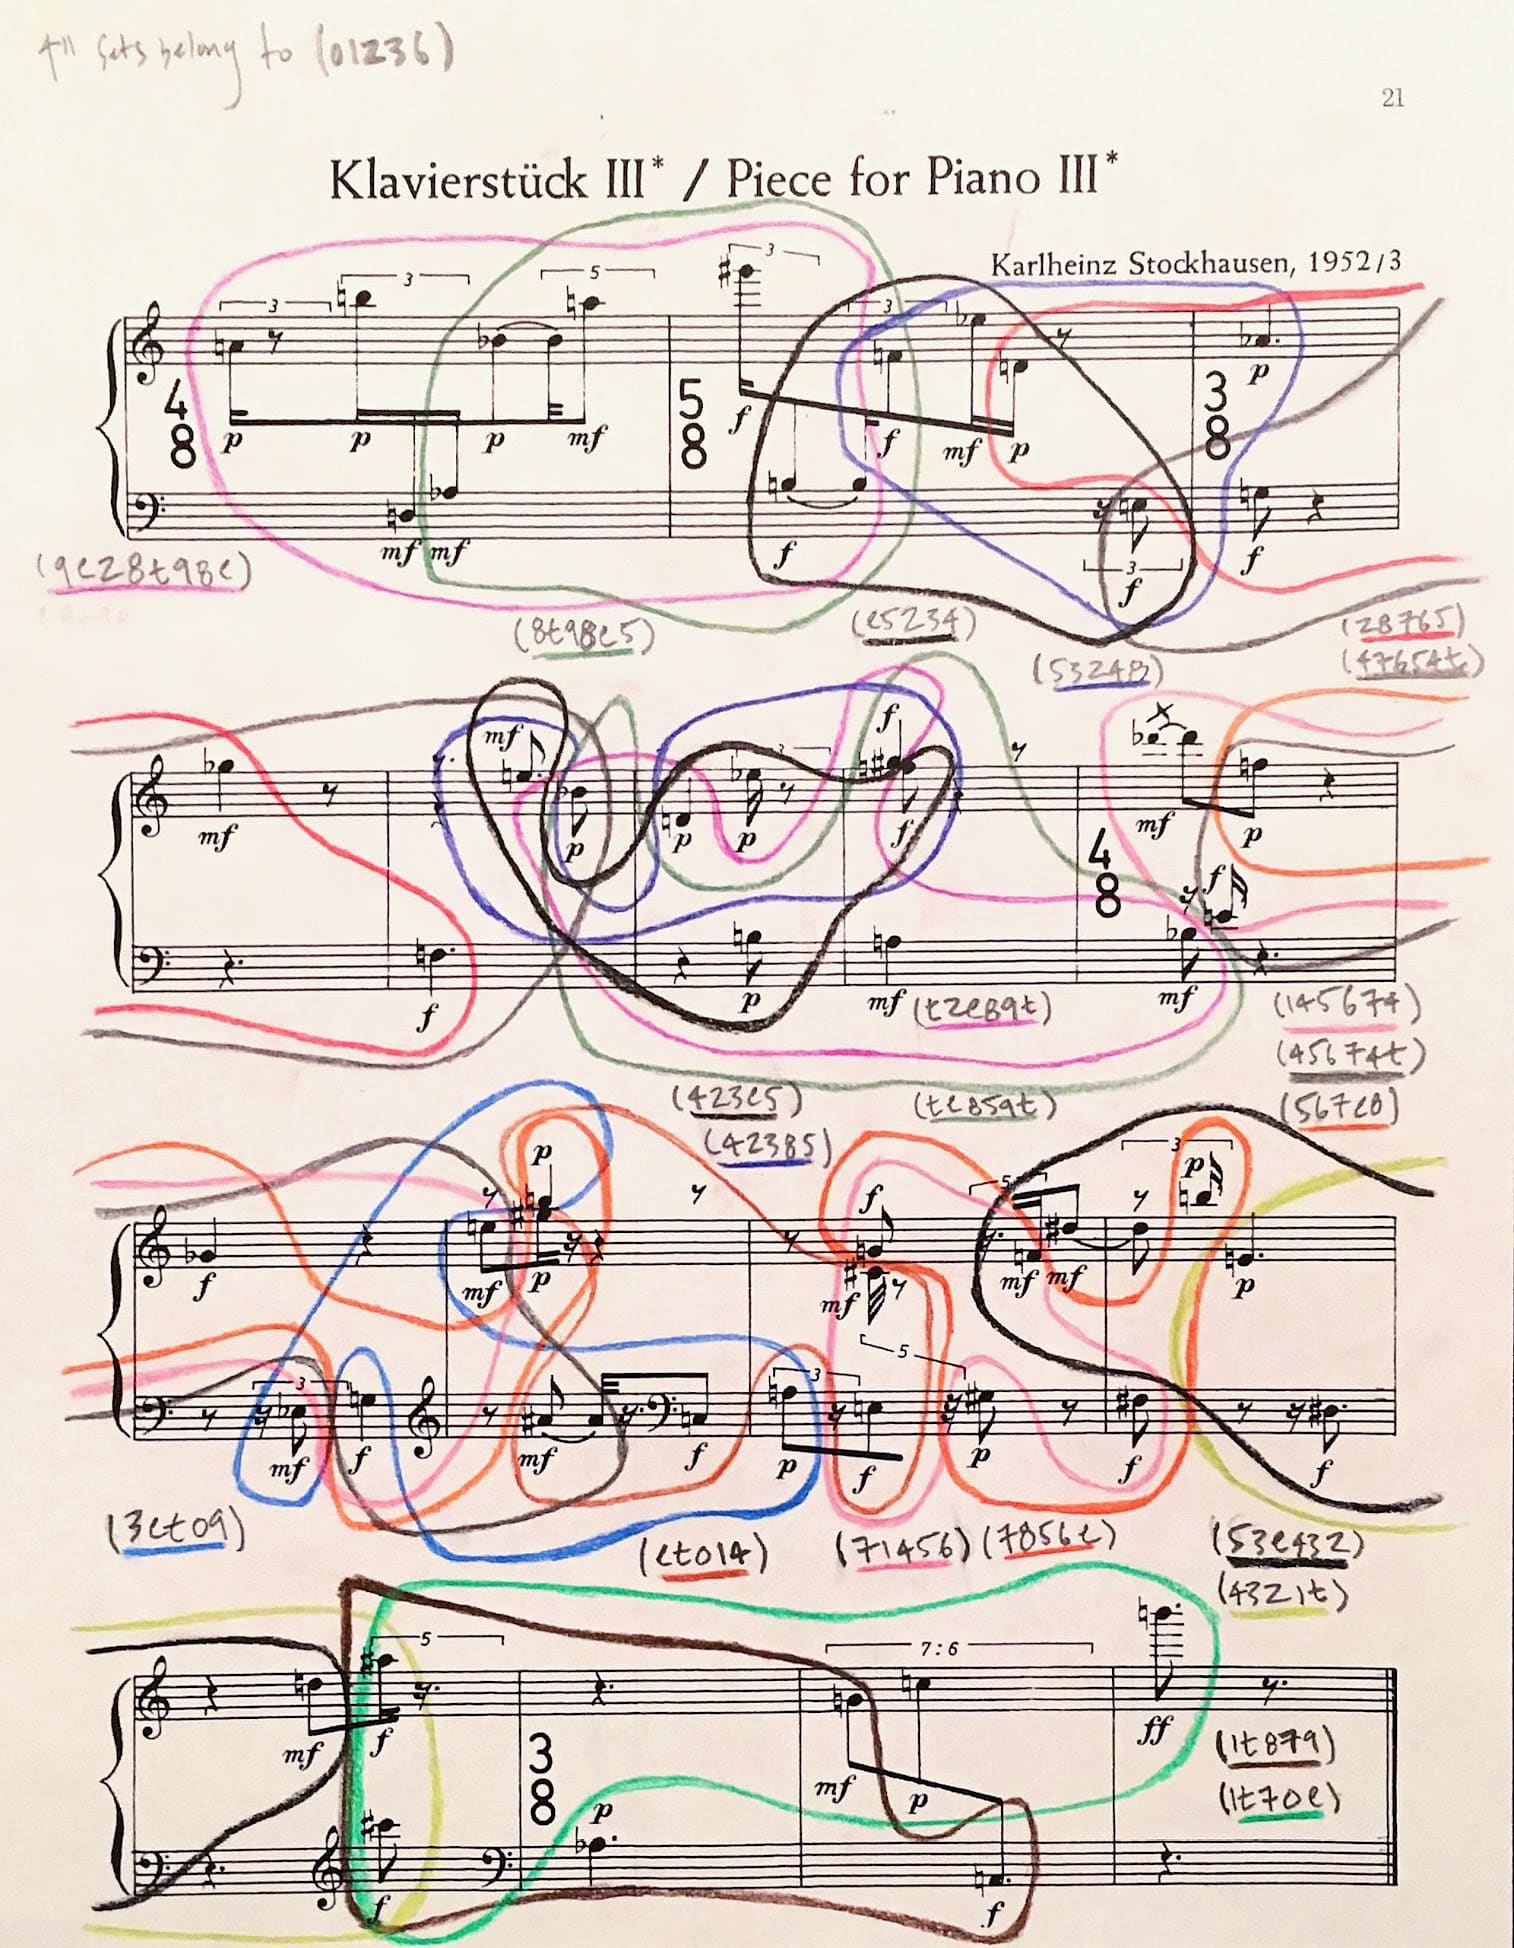 All sets belong to (01236)
21
Klavierstück III* / Piece for Piano III*
Karlheinz Stockhausen, 1952/3
3 3 5 3 3
4 8 5 8 3 8
p p p mf f f mf p p
mf mf f f f
3
(9e28t98e)
(8t98e5) (e5234) (28765)
(47654t)
mf 3 f
mf p p p f
4 8
mf p
f
f p mf mf
(t2e89t) (145674)
(45674t)
(423e5) (te859t) (567e8)
(42385)
p 3
f 5 p
f mf p mf mf mf p
5
3 3
mf f mf f p f p f f
(3et09) (et014) (71456) (7856e) (53e432)
(4321t)
5 7:6
mf f ff
(1t879)
3 8
p mf p (1t70e)
f f